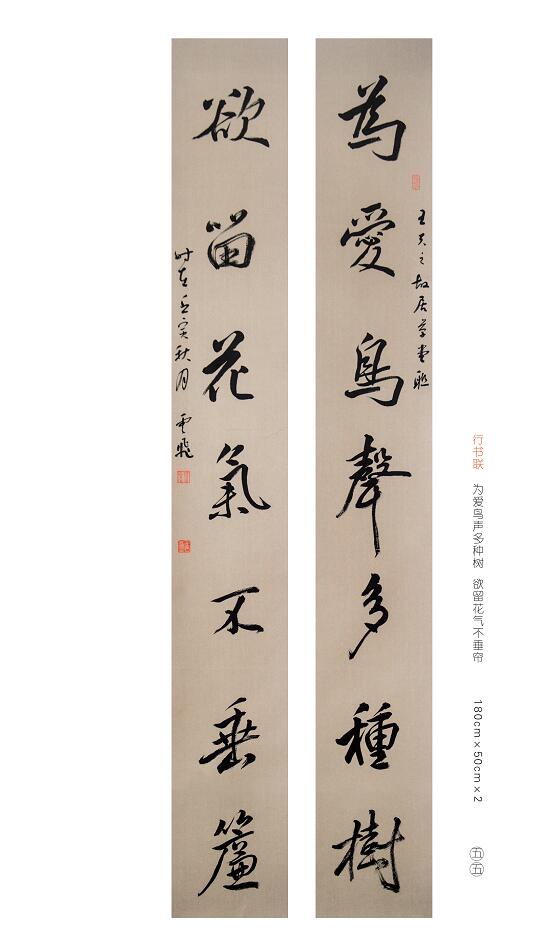 為愛鳥聲多種樹
王夫之故居草堂联
欲留花氣不垂簾
时在壬寅秋月 云飛
行书联 为爱鸟声多种树 欲留花气不垂帘 180cm×50cm×2
五五